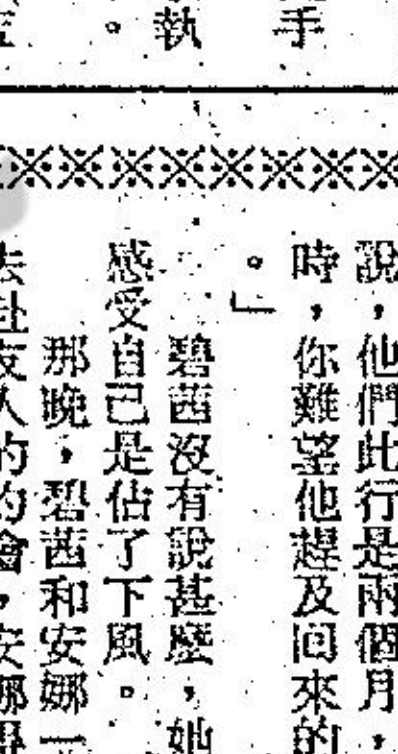 手
執
。
說，他們此行是兩個月，
時，你難望他趕及回來的
。」
碧茜沒有說甚麼，她
感受自己是佔了下風。
那晚，碧茜和安娜一
去赴友人的約會，安娜